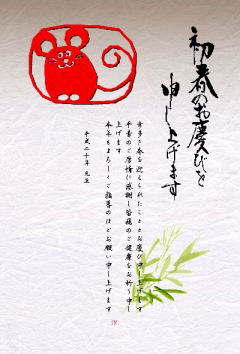 初春のお慶びを
申し上げます
幸多き春を迎えられたこととお慶び申し上げます
平素のご厚情に感謝し皆様のご健康をお祈り申し
上げます
本年もよろしくご指導のほどお願い申し上げます
平成二十年 元旦